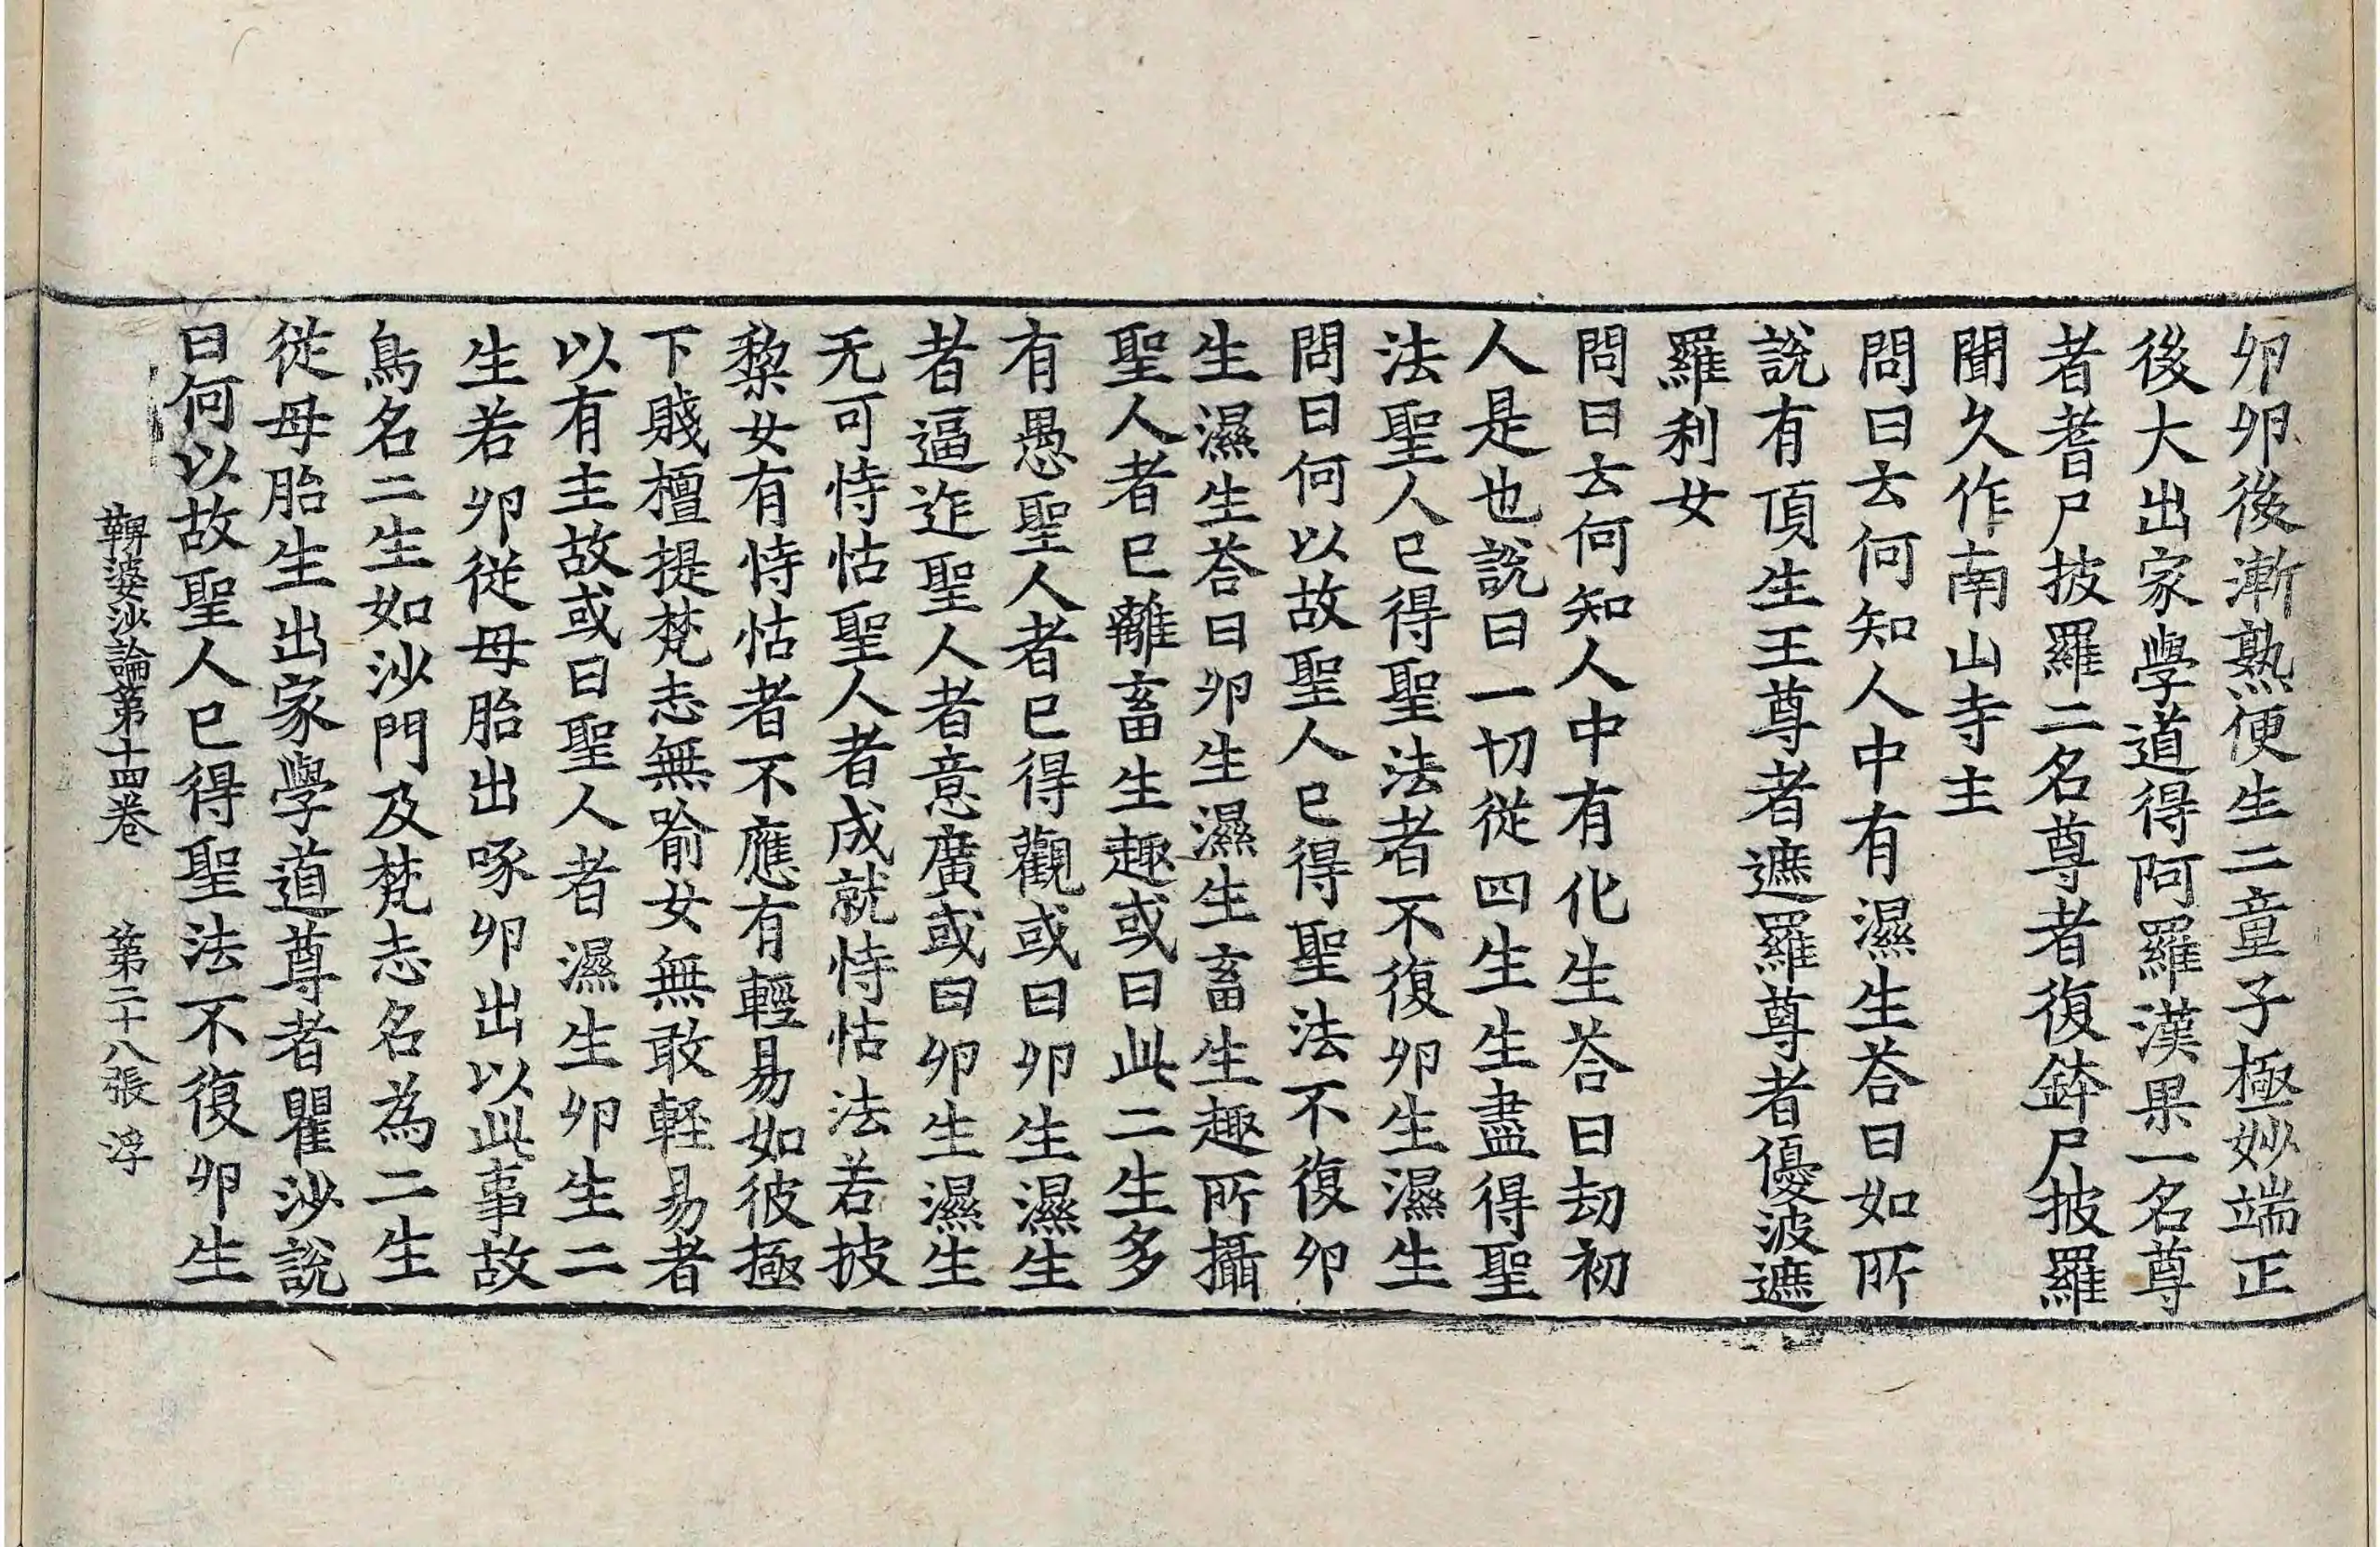 卵卵後漸熟便生二童子極妙端正
後大出家學道得阿羅漢果一名尊
者耆尸披羅二名尊者復鉢尸披羅
聞久作南山寺主
問曰云何知人中有濕生荅曰如所
說有頂生王尊者遮羅尊者優波遮
羅利女
問曰云何知人中有化生荅曰劫初
人是也說曰一切從四生生盡得聖
法聖人已得聖法者不復卵生濕生
問曰何以故聖人已得聖法不復卵
生濕生荅曰卵生濕生畜生趣所攝
聖人者已離畜生趣或曰此二生多
有愚聖人者已得觀或曰卵生濕生
者逼迮聖人者意廣或曰卵生濕生
无可恃怙聖人者成就恃怙法若披
棃女有恃怙者不應有輕易如彼極
下賤檀提梵志無喻女無敢輕易者
以有主故或曰聖人者濕生卵生二
生若卵從母胎出啄卵出以此事故
鳥名二生如沙門及梵志名為二生
從母胎生出家學道尊者瞿沙說
曰何以故聖人已得聖法不復卵生
鞞婆沙論第十四卷　第二十八張　浮